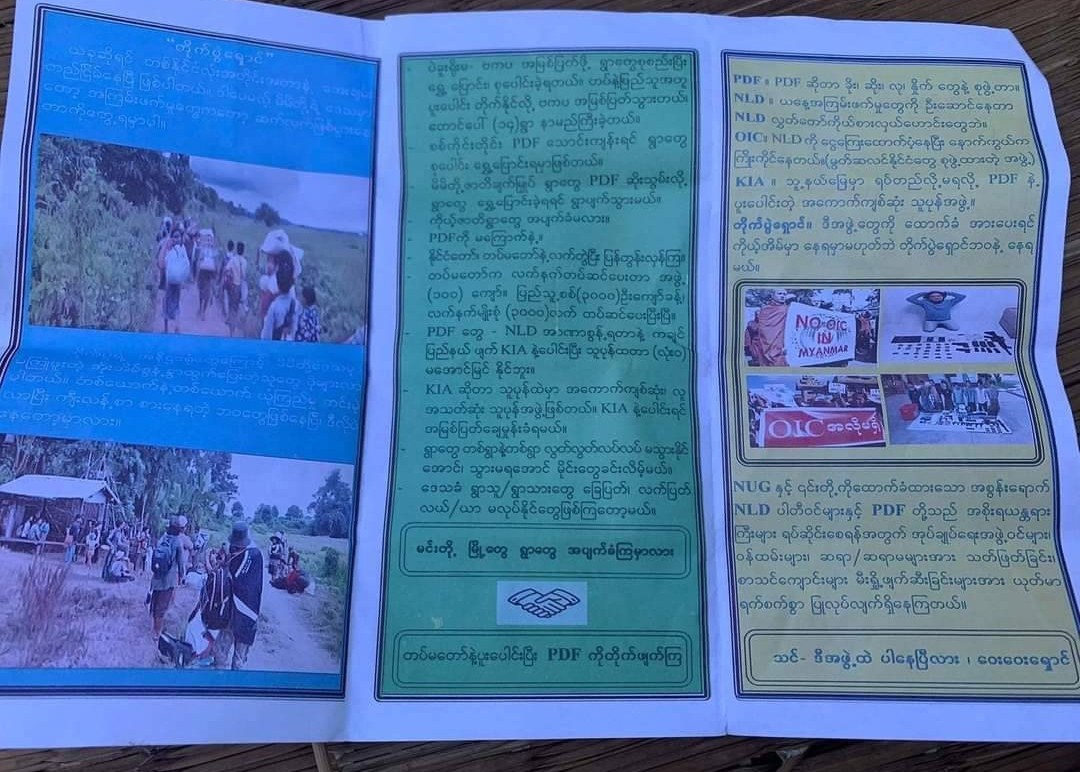 "တိုက်ပွဲရှောင်"
ယခုဆိုရင် တစ်နိုင်ငံလုံးအတိုင်းအတာနဲ့ အေးချမ်း
တည်ငြိမ်နေပြီ ဖြစ်ပါတယ်။ ဒါပေမယ့် မိမိတို့ရဲ့ ဒေသမှာ
တော့ အကြမ်းဖက်မှုတွေကတော့ ဆက်လက်ဖြစ်ပွားနေ
တာကိုတွေ့ရမှာပါ။
ဘဝတွေဖြစ်နေပြီ
- ပဲခူးရိုးမ- ဗကပ အမြစ်ပြတ်ဖို့ ရွာတွေစုစည်းပြီး
ရွှေ့ပြောင်း စုပေါင်းခဲ့ရတယ်။ တပ်နဲ့ပြည်သူအတူ
ပူးပေါင်း တိုက်နိုင်လို့ ဗကပ အမြစ်ပြတ်သွားတယ်။
တောင်ပေါ် (၁၄)ရွာ နာမည်ကြီးခဲ့တယ်။
- စစ်ကိုင်းတိုင်း PDF သောင်းကျန်းရင် ရွာတွေ
စုပေါင်း ရွှေ့ပြောင်းရမှာဖြစ်တယ်။
- မိမိတို့ဇာတိချက်မြှုပ် ရွာတွေ PDF ဆိုးသွမ်းလို့
ရွာတွေ ရွှေ့ပြောင်းခဲ့ရရင် ရွာပျက်သွားမယ်။
- ကိုယ့်ဇာတိရွာတွေ အပျက်ခံမလား။
- PDFကို မကြောက်နဲ့။
- နိုင်ငံတော်၊ တပ်မတော်နဲ့လက်တွဲပြီး ပြန်တွန်းလှန်ကြ။
တပ်မတော်က လက်နက်တပ်ဆင်ပေးတာ အဖွဲ့
(၁၀၀) ကျော်။ ပြည်သူ့စစ်(၃၀၀၀)ဦးကျော်ခန့်၊
လက်နက်မျိုးစုံ (၃၀၀၀)လက် တပ်ဆင်ပေးပြီးပြီ။
- PDF တွေ - NLD အာဏာစွန့်ရတာနဲ့ ကချင်
ပြည်နယ် ဖျက် KIA နဲ့ပေါင်းပြီး သူပုန်ထတာ (လုံးဝ)
မအောင်မြင် နိုင်ဘူး။
- KIA ဆိုတာ သူပုန်ထဲမှာ အကောက်ကျစ်ဆုံး၊ လူ
အသတ်ဆုံး သူပုန်အဖွဲ့ဖြစ်တယ်။ KIA နဲ့ပေါင်းရင်
အမြစ်ပြတ်ချေမှုန်းခံရမယ်။
- ရွာတွေ တစ်ရွာနဲ့တစ်ရွာ လွတ်လွတ်လပ်လပ် မသွားနိုင်
အောင်၊ သွားမရအောင် မိုင်းတွေခင်းလိမ့်မယ်။
- ဒေသခံ ရွာသူ/ရွာသားတွေ ခြေပြတ်၊ လက်ပြတ်
လယ်/ယာ မလုပ်နိုင်တွေဖြစ်ကြတော့မယ်။
မင်းတို့ မြို့တွေ ရွာတွေ အပျက်ခံကြမှာလား
တပ်မတော်နဲ့ပူးပေါင်းပြီး PDF ကိုတိုက်ဖျက်ကြ
PDF ။ PDF ဆိုတာ ခိုး၊ ဆိုး၊ လု၊ နှိုက် တွေနဲ့ စုဖွဲ့တာ။
NLD ။ ယနေ့အကြမ်းဖက်မှုတွေကို ဦးဆောင်နေတာ
NLD လွှတ်တော်ကိုယ်စားလှယ်ဟောင်းတွေဘဲ။
OIC။ NLD ကို ငွေကြေးထောက်ပံ့နေပြီး နောက်ကွယ်က
ကြိုးကိုင်နေတယ်။(မွတ်ဆလင်နိုင်ငံတွေ စုဖွဲ့ထားတဲ့ အဖွဲ့)
KIA ။ သူ့နယ်မြေမှာ ရပ်တည်လို့မရလို့ PDF နဲ့
ပူးပေါင်းတဲ့ အကောက်ကျစ်ဆုံး သူပုန်အဖွဲ့။
တိုက်ပွဲရှောင်။ ဒီအဖွဲ့တွေကို ထောက်ခံ အားပေးရင်
ကိုယ့်အိမ်မှာ နေရမှာမဟုတ်ဘဲ တိုက်ပွဲရှောင်ဘဝနဲ့ နေရ
မယ်။
NO OIC
IN
MYANMAR
OIC အလိုမရှိ
NUG နှင့် ၎င်းတို့ကိုထောက်ခံထားသော အစွန်းရောက်
NLD ပါတီဝင်များနှင့် PDF တို့သည် အစိုးရယန္တရား
ကြီးများ ရပ်ဆိုင်းစေရန်အတွက် အုပ်ချုပ်ရေးအဖွဲ့ဝင်များ၊
ဝန်ထမ်းများ၊ ဆရာ/ဆရာမများအား သတ်ဖြတ်ခြင်း၊
စာသင်ကျောင်းများ မီးရှို့ဖျက်ဆီးခြင်းများအား ယုတ်မာ
ရက်စက်စွာ ပြုလုပ်လျက်ရှိနေကြတယ်။
သင်- ဒီအဖွဲ့ထဲ ပါနေပြီလား ၊ ဝေးဝေးရှောင်